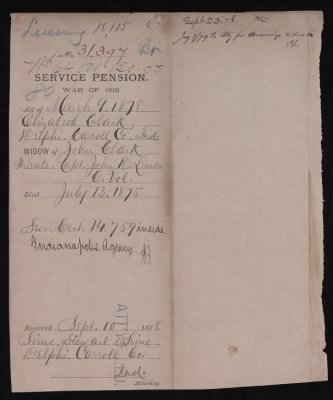 18,185
No 31,397
SERVICE PENSION.
WAR OF 1812.
Act of March 9, 1878
Elizabeth Clark
Delphi Carroll Co. Ind.
WIDOW of John Clark
Private Cpt. John
O. Vol.
Died July 13, 1875
Sur. Cert. 14.759 inside
Indianapolis Agency.
Received Sept. 10 1878
Sims, Stewart & Sims
Delphi Carroll Co.
Ind.
Attorney.
Sept 23.78.
for